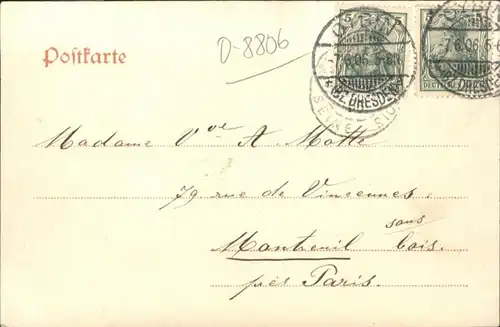 Postkarte
D-8806
5 5
OYBIN
7.6.06. 5-6N
* (BZ. DRESDEN)
Madame Vve A. Motte
79 rue de Vincennes.
sous
Montreuil bois.
près Paris.